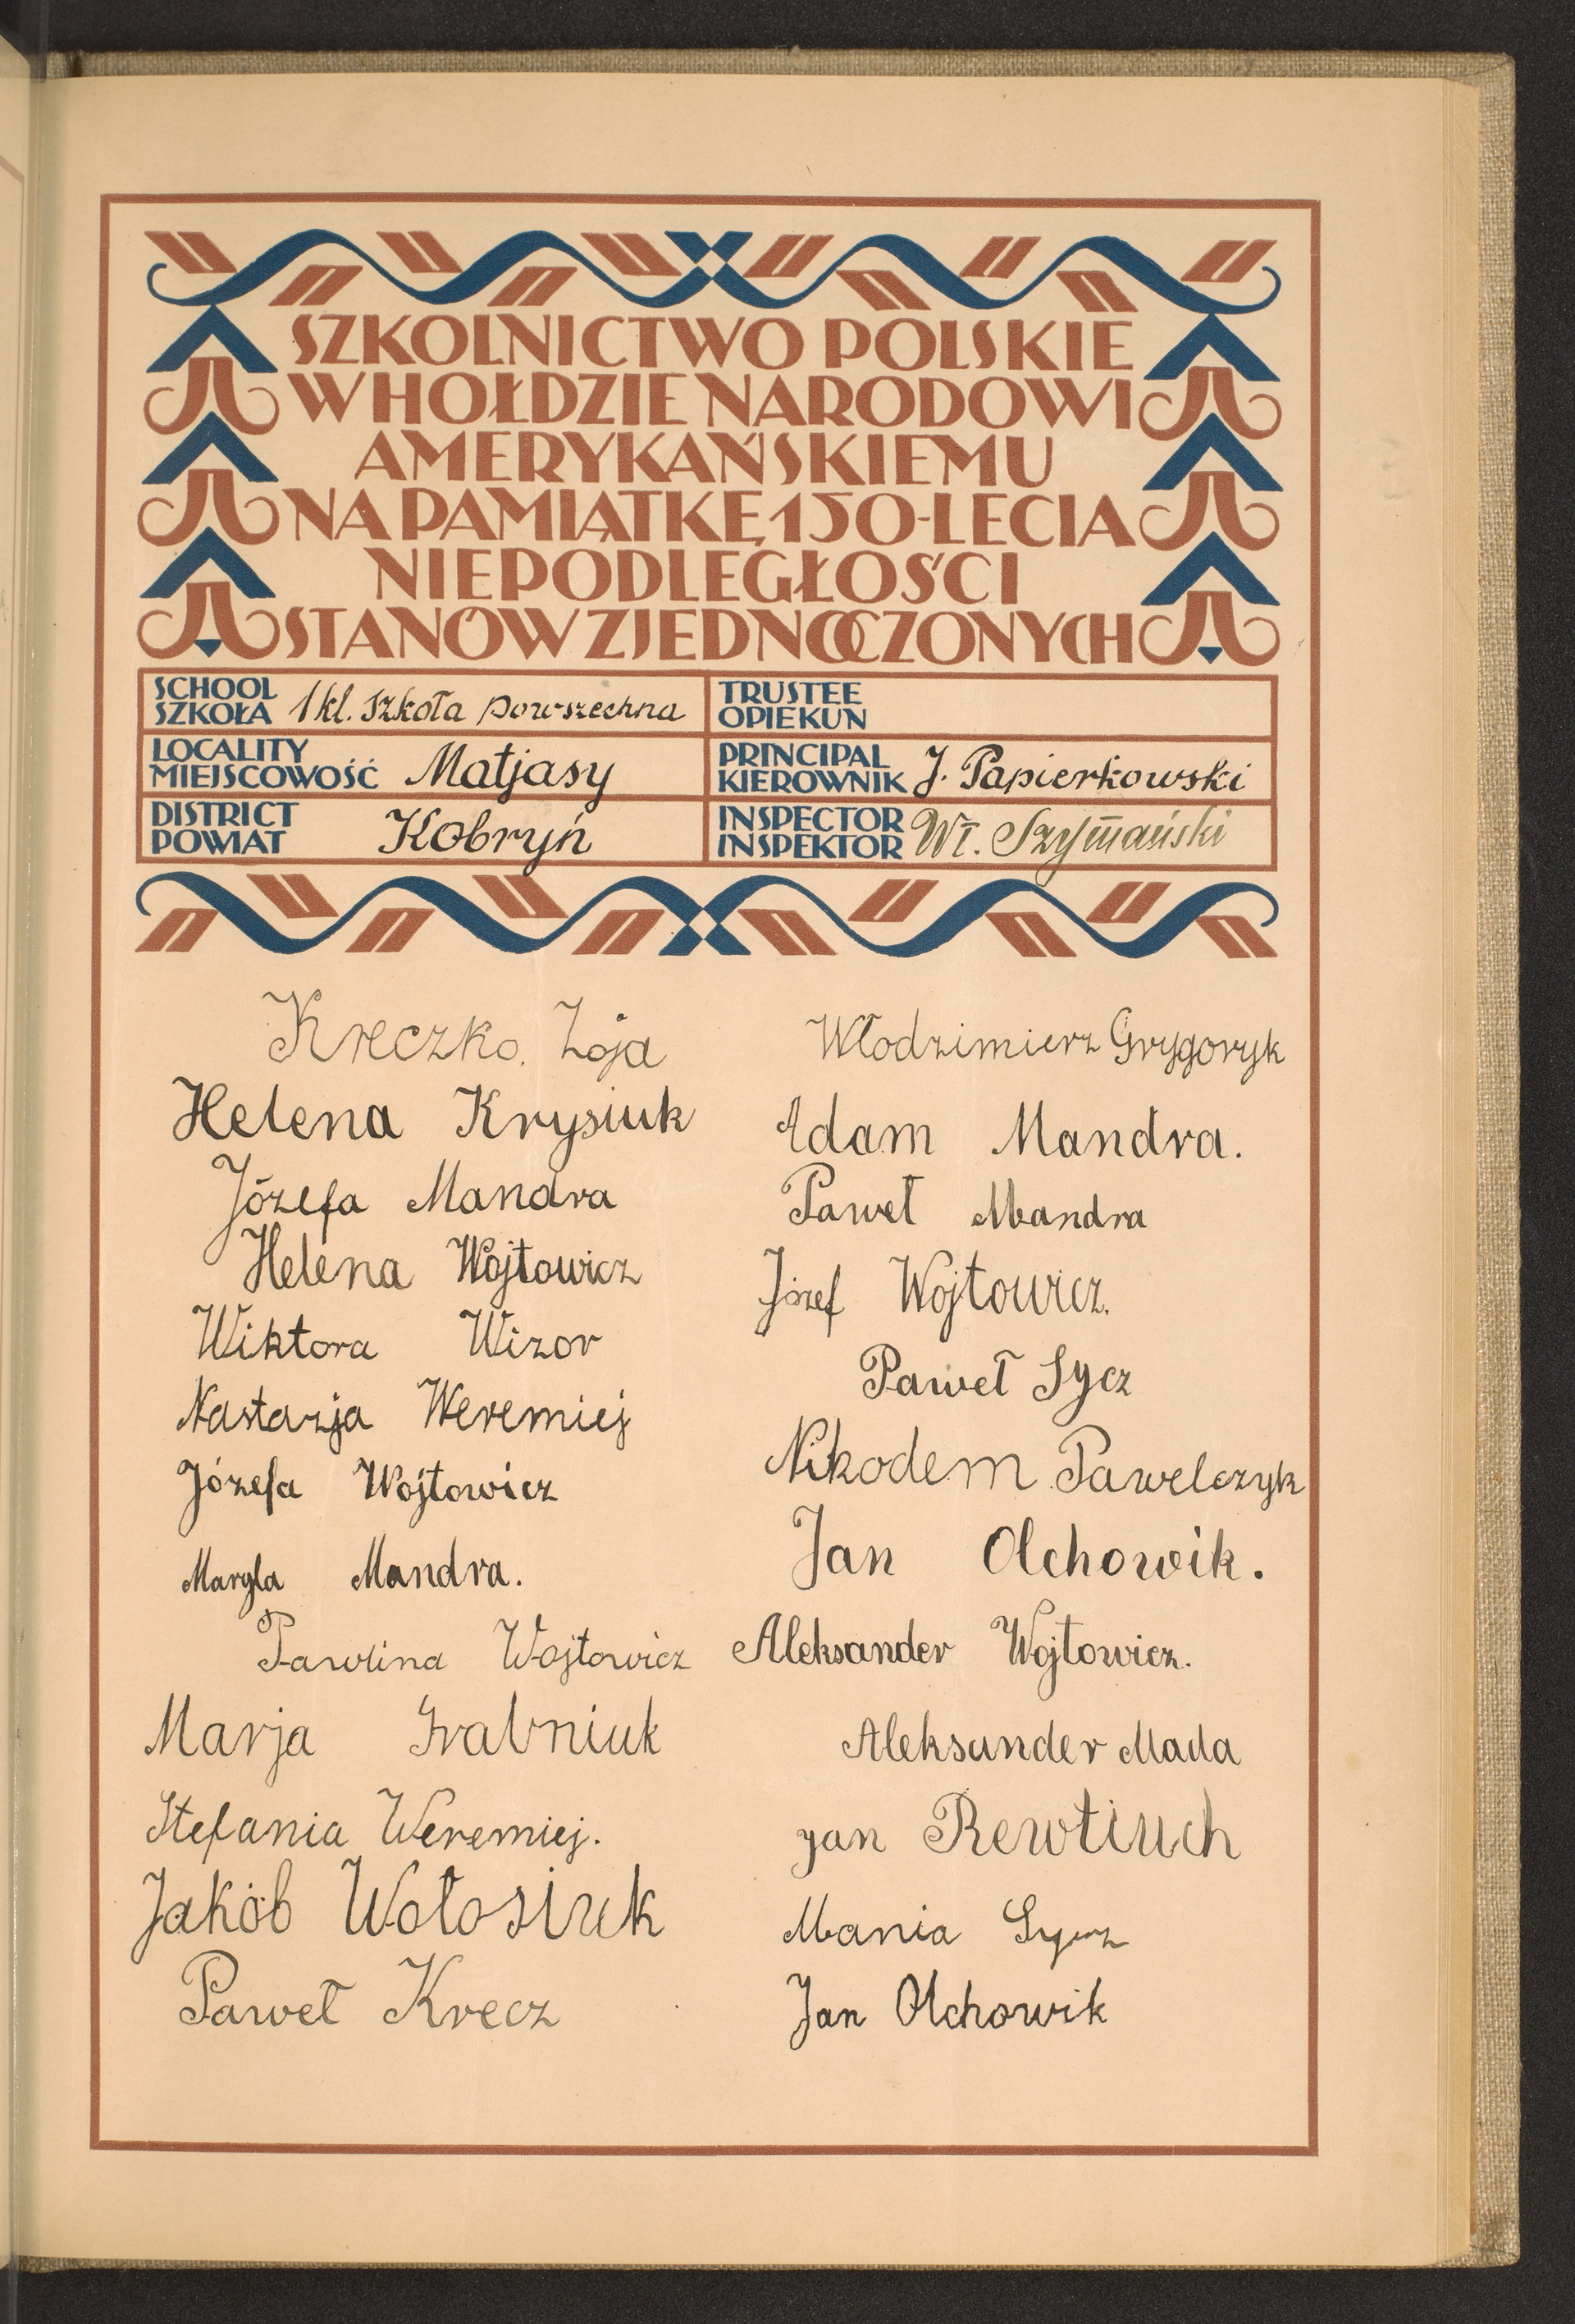 SZKOLNICTWO POLSKIE
W HOŁDZIE NARODOWI
AMERYKAŃSKIEMU
NA PAMIĄTKĘ 150-LECIA
NIEPODLEGŁOŚCI
STANÓW ZJEDNOCZONYCH
SCHOOL
SZKOŁA 1 kl. Szkoła powszechna
LOCALITY
MIEJSCOWOŚĆ Matjasy
DISTRICT
POWIAT Kobryń
TRUSTEE
OPIEKUN
PRINCIPAL
KIEROWNIK J. Papierkowski
INSPECTOR
INSPEKTOR Wł. Szymański
Kreczko. Zoja
Helena Krysiuk
Józefa Mandra
Helena Wojtowicz
Wiktora Wizor
Nastazja Weremiej
Józefa Wojtowicz
Margla Mandra.
Pawlina Wojtowicz
Marja Grabniuk
Stefania Weremiej.
Jakób Wołosiuk
Paweł Krecz
Włodzimierz Grygoryk
Adam Mandra.
Paweł Mandra
Józef Wojtowicz.
Paweł Sycz
Nikodem Pawelczyk
Jan Olchowik.
Aleksander Wojtowicz.
Aleksander Mada
Jan Rewtiuch
Mania Sycz
Jan Olchowik